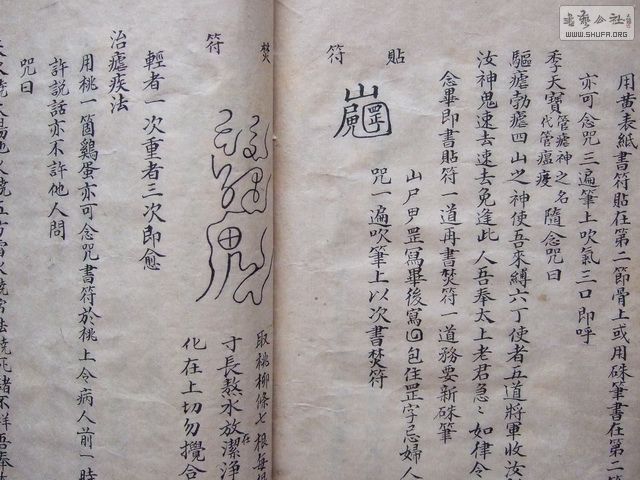 用黄表紙書符貼在第二節骨上或用硃筆書在第二
亦可念咒三遍筆上吹氣三口即呼
季天寶管瘧神之名代管瘟疫隨念咒曰
驅瘧勃瘧四山之神使吾來縛六丁使者五道將軍收
汝神鬼速去速去免逢此人吾奉太上老君急〻如律令
念畢即書貼符一道再書焚符一道務要新硃筆
山尸甲罡寫畢後寫囬包住罡字忌婦人
咒一遍吹筆上以次書焚符
貼符
焚符
取桃柳條七根每根
寸長熬水放在潔淨
化在上切勿攪合
輕者一次重者三次即愈
治瘧疾法
用桃一箇鷄蛋亦可念咒書符於桃上令病人前一時
許說話亦不許他人問
咒曰
書藝公社
WWW.SHUFA.ORG